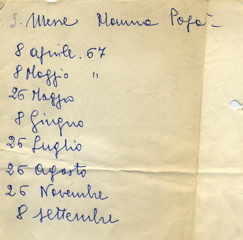 S. Messe Mamma Papà
8 aprile. 67
8 Maggio "
26 Maggio
8 Giugno
26 Luglio
26 Agosto
26 Novembre
8 settembre